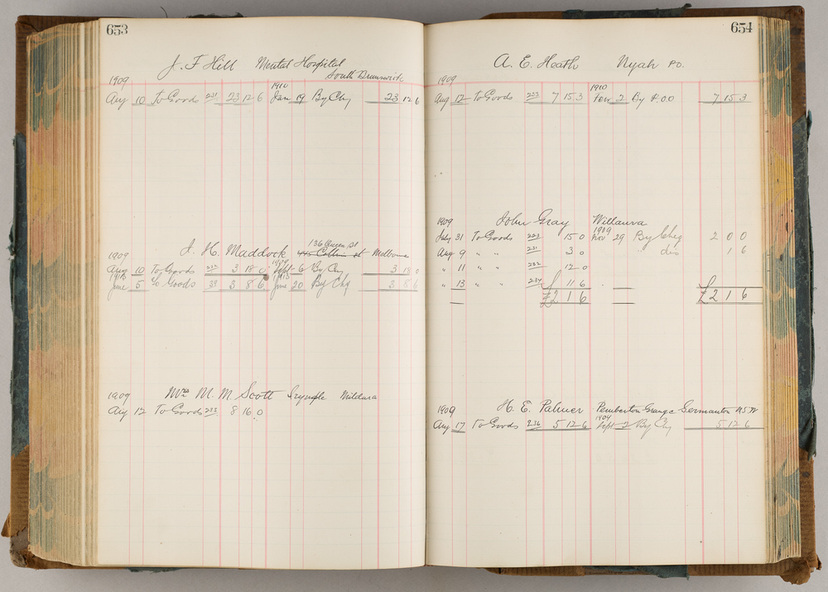 653
J. F. Hill Mental Hospital
South Brunswick
1909 1910
Aug 10 To Goods 231 23 12 6 Jan 19 By Chq 23 12 6
J. H. Maddock 136 Queen St
Collins st Melbourne
1909 1909
Aug 10 To Goods 3 18 0 Sept 6 By Chq 3 18 0
June 5 To Goods 3 8 6 June 20 By Chq 3 8 6
1909 Mrs M. M. Scott Irymple Mildura
Aug 12 To Goods 232 8 16 0
654
A. E. Heath Nyah P.O.
1909 1910
Aug 12 To Goods 233 7 15 3 2 By P.O.O 7 15 3
1909 John Gray Willaura
1909
July 31 To Goods 15 0 Nov 29 By Chq 2 0 0
Aug 9 " " 231 3 0 dis 1 6
" 11 " " 232 12 0
" 13 " " 234 11 6
£2 1 6 £2 1 6
1909 H. E. Palmer Pemberton Grange Germanton N.S.W
1909
Aug 17 To Goods 236 5 12 6 Sept 2 By Chq 5 12 6